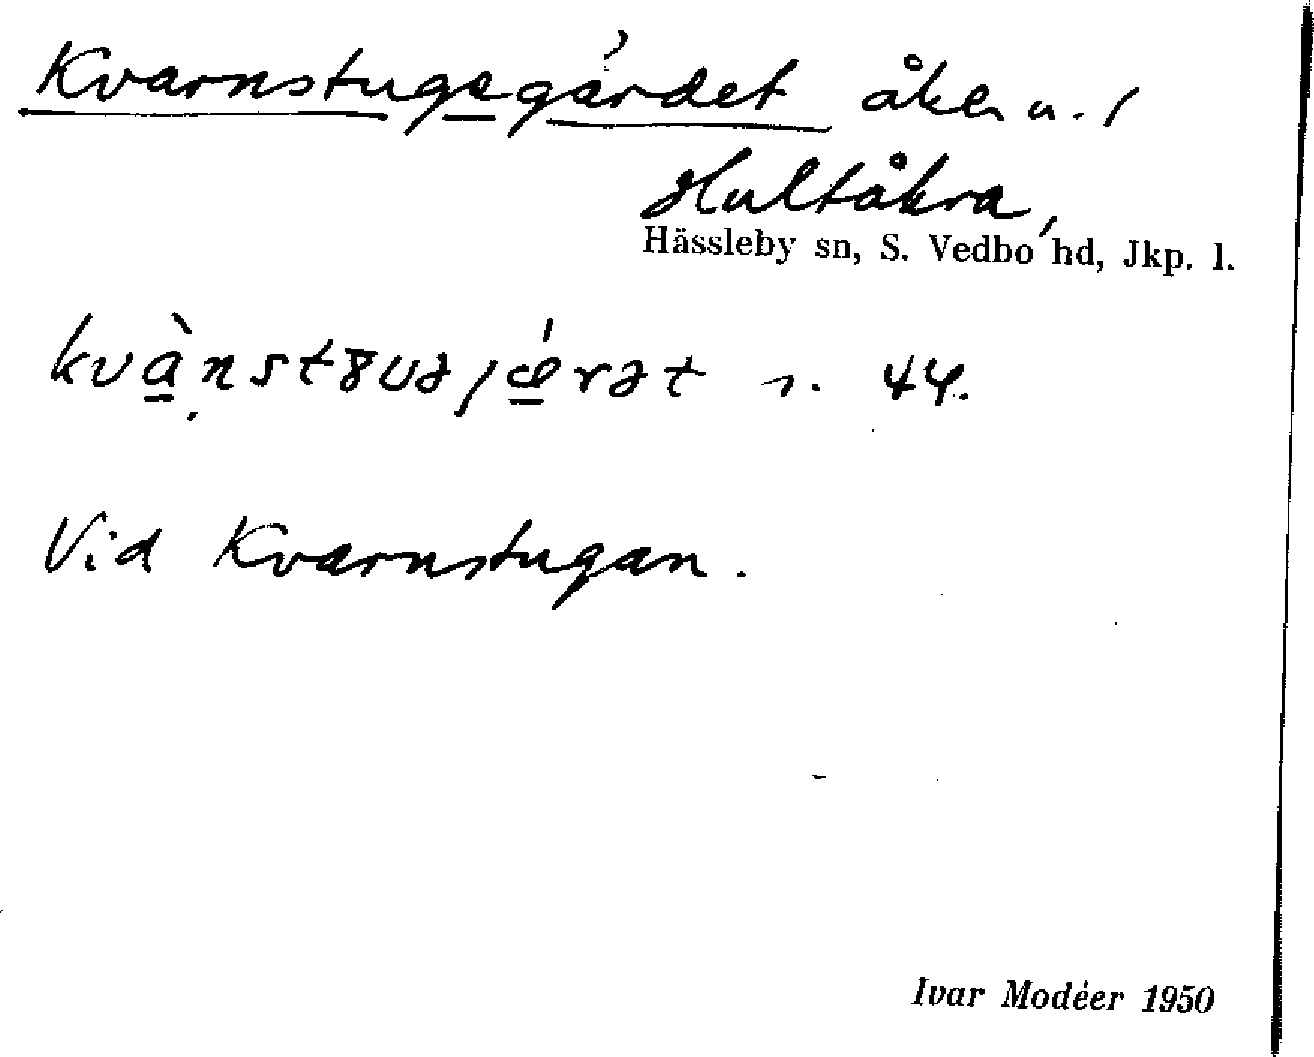 Kvarnstugegärdet åker u. /
Hultåkra,
Hässleby sn, S. Vedbo hd, Jkp. l.
kvànstȣuə/ǽrət s. 44.
Vid Kvarnstugan.
Ivar Modéer 1950